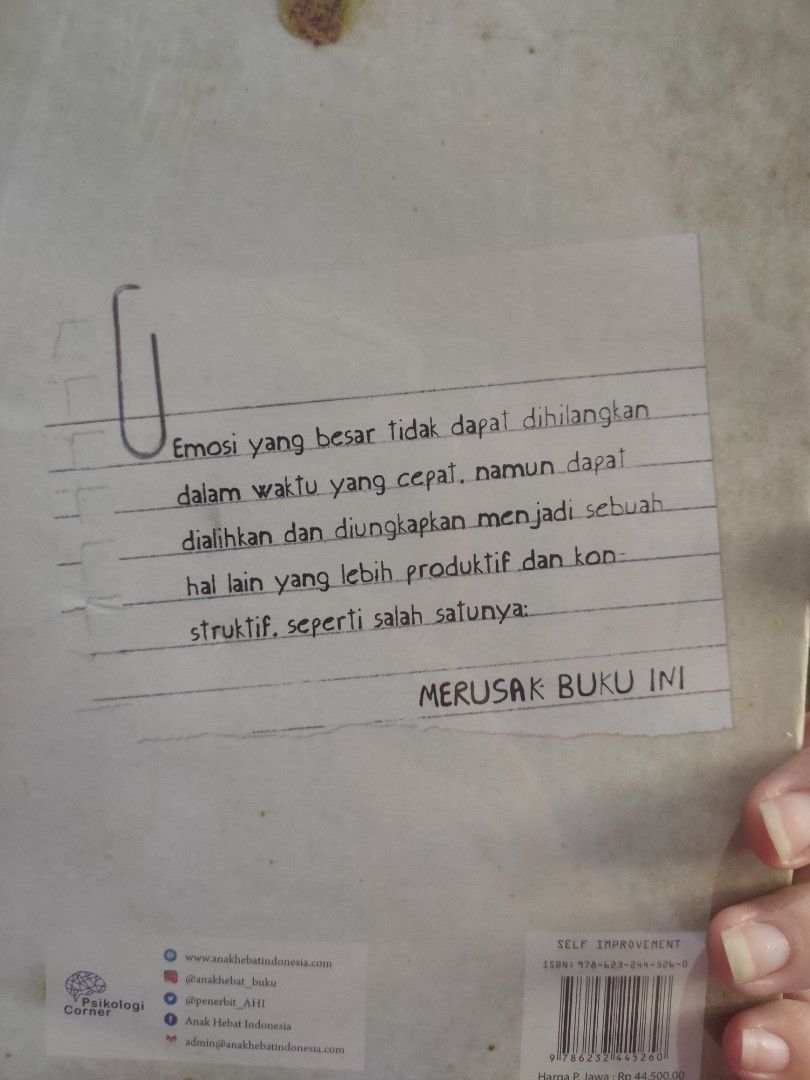 Emosi yang besar tidak dapat dihilangkan
dalam waktu yang cepat, namun dapat
dialihkan dan diungkapkan menjadi sebuah
hal lain yang lebih produktif dan kon-
struktif, seperti salah satunya:
MERUSAK BUKU INI
Psikologi
Corner
www.anakhebatindonesia.com
@anakhebat_buku
@penerbit_AHI
Anak Hebat Indonesia
admin@anakhebatindonesia.com
SELF IMPROVEMENT
ISBN: 978-623-244-526-0
9 786232 445260
Harga P. Jawa : Rp 44.500,00